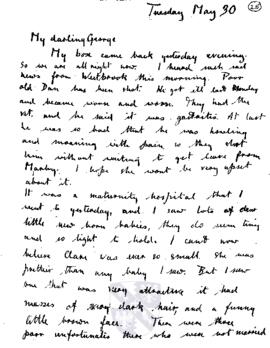 Tuesday May 30 (25)
My darling George
My box came back yesterday evening.
So we are all right now. I heard such sad
news from Westbrook this morning. Poor
old Dan has been shot. He got ill last Monday
and became worse and worse. They had the
vet. and he said it was gastritis. At last
he was so bad that he was howling
and moaning with pain so they shot
him without waiting to get leave from
I hope she won't be very upset
about it.
It was a maternity hospital that I
went to yesterday, and I saw lots of dear
little new born babies, they do seem tiny
and so light to hold. I can't now
believe Clare was ever so small. She was
prettier than any baby I saw. But I saw
one that was very attractive it had
masses of very dark hair, and a funny
little brown face. There were three
poor unfortunates there who were not married